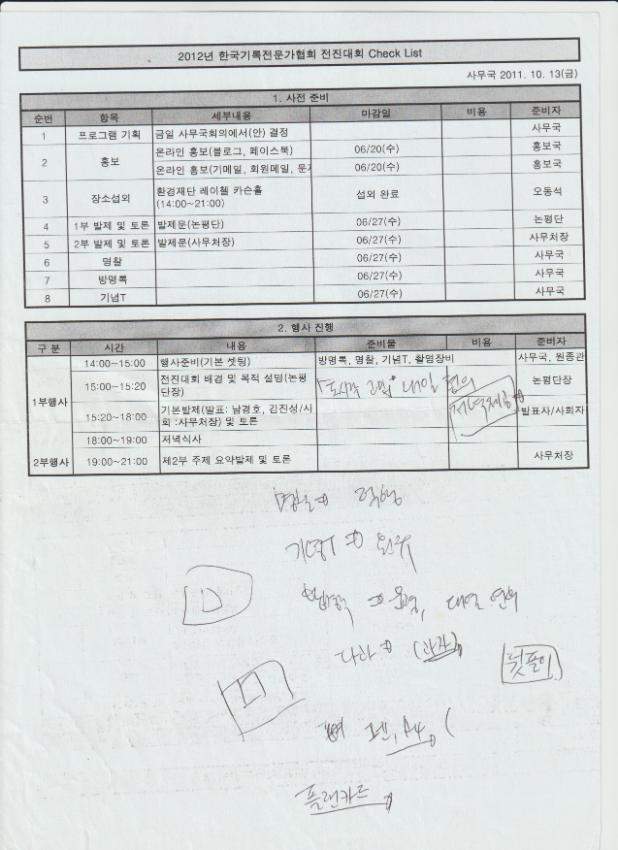 2012년 한국기록전문가협회 전진대회 Check List
사무국 2011. 10. 13(금)
1. 사전 준비
순번 항목 세부내용 마감일 비용 준비자
1 프로그램 기획 금일 사무국회의에서(안) 결정 사무국
2 홍보 온라인 홍보(블로그, 페이스북) 06/20(수) 홍보국
온라인 홍보(기메일, 회원메일, 문자 06/20(수) 홍보국
3 장소섭외 환경재단 레이첼 카슨홀 (14:00~21:00) 섭외 완료 오동석
4 1부 발제 및 토론 발제문(논평단) 06/27(수) 논평단
5 2부 발제 및 토론 발제문(사무처장) 06/27(수) 사무처장
6 명찰 06/27(수) 사무국
7 방명록 06/27(수) 사무국
8 기념T 06/27(수) 사무국
2. 행사 진행
구 분 시간 내용 준비물 비용 준비자
1부행사 14:00~15:00 행사준비(기본 셋팅) 방명록, 명찰, 기념T, 촬영장비 사무국, 원종관
15:00~15:20 전진대회 배경 및 목적 설명(논평단장) 내일 논평단장
15:20~18:00 기본발제(발표: 남경호, 김진성/사회 :사무처장) 및 토론 저녁제공 발표자/사회자
18:00~19:00 저녁식사
2부행사 19:00~21:00 제2부 주제 요약발제 및 토론 사무처장
기념T ⇒
다과 ⇒ (과자)
뒷풀이
펜, A4, (
플랜카드